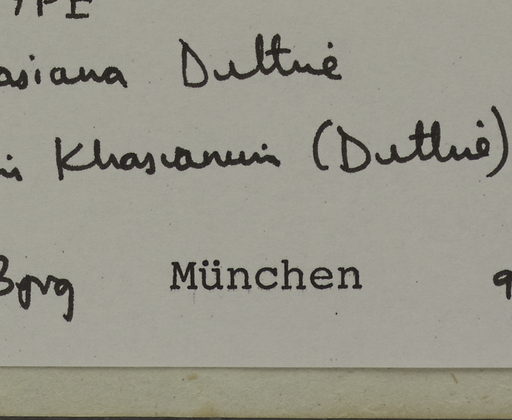 YPE
asiana Duthie
is Khasianum (Duthie)
München 9